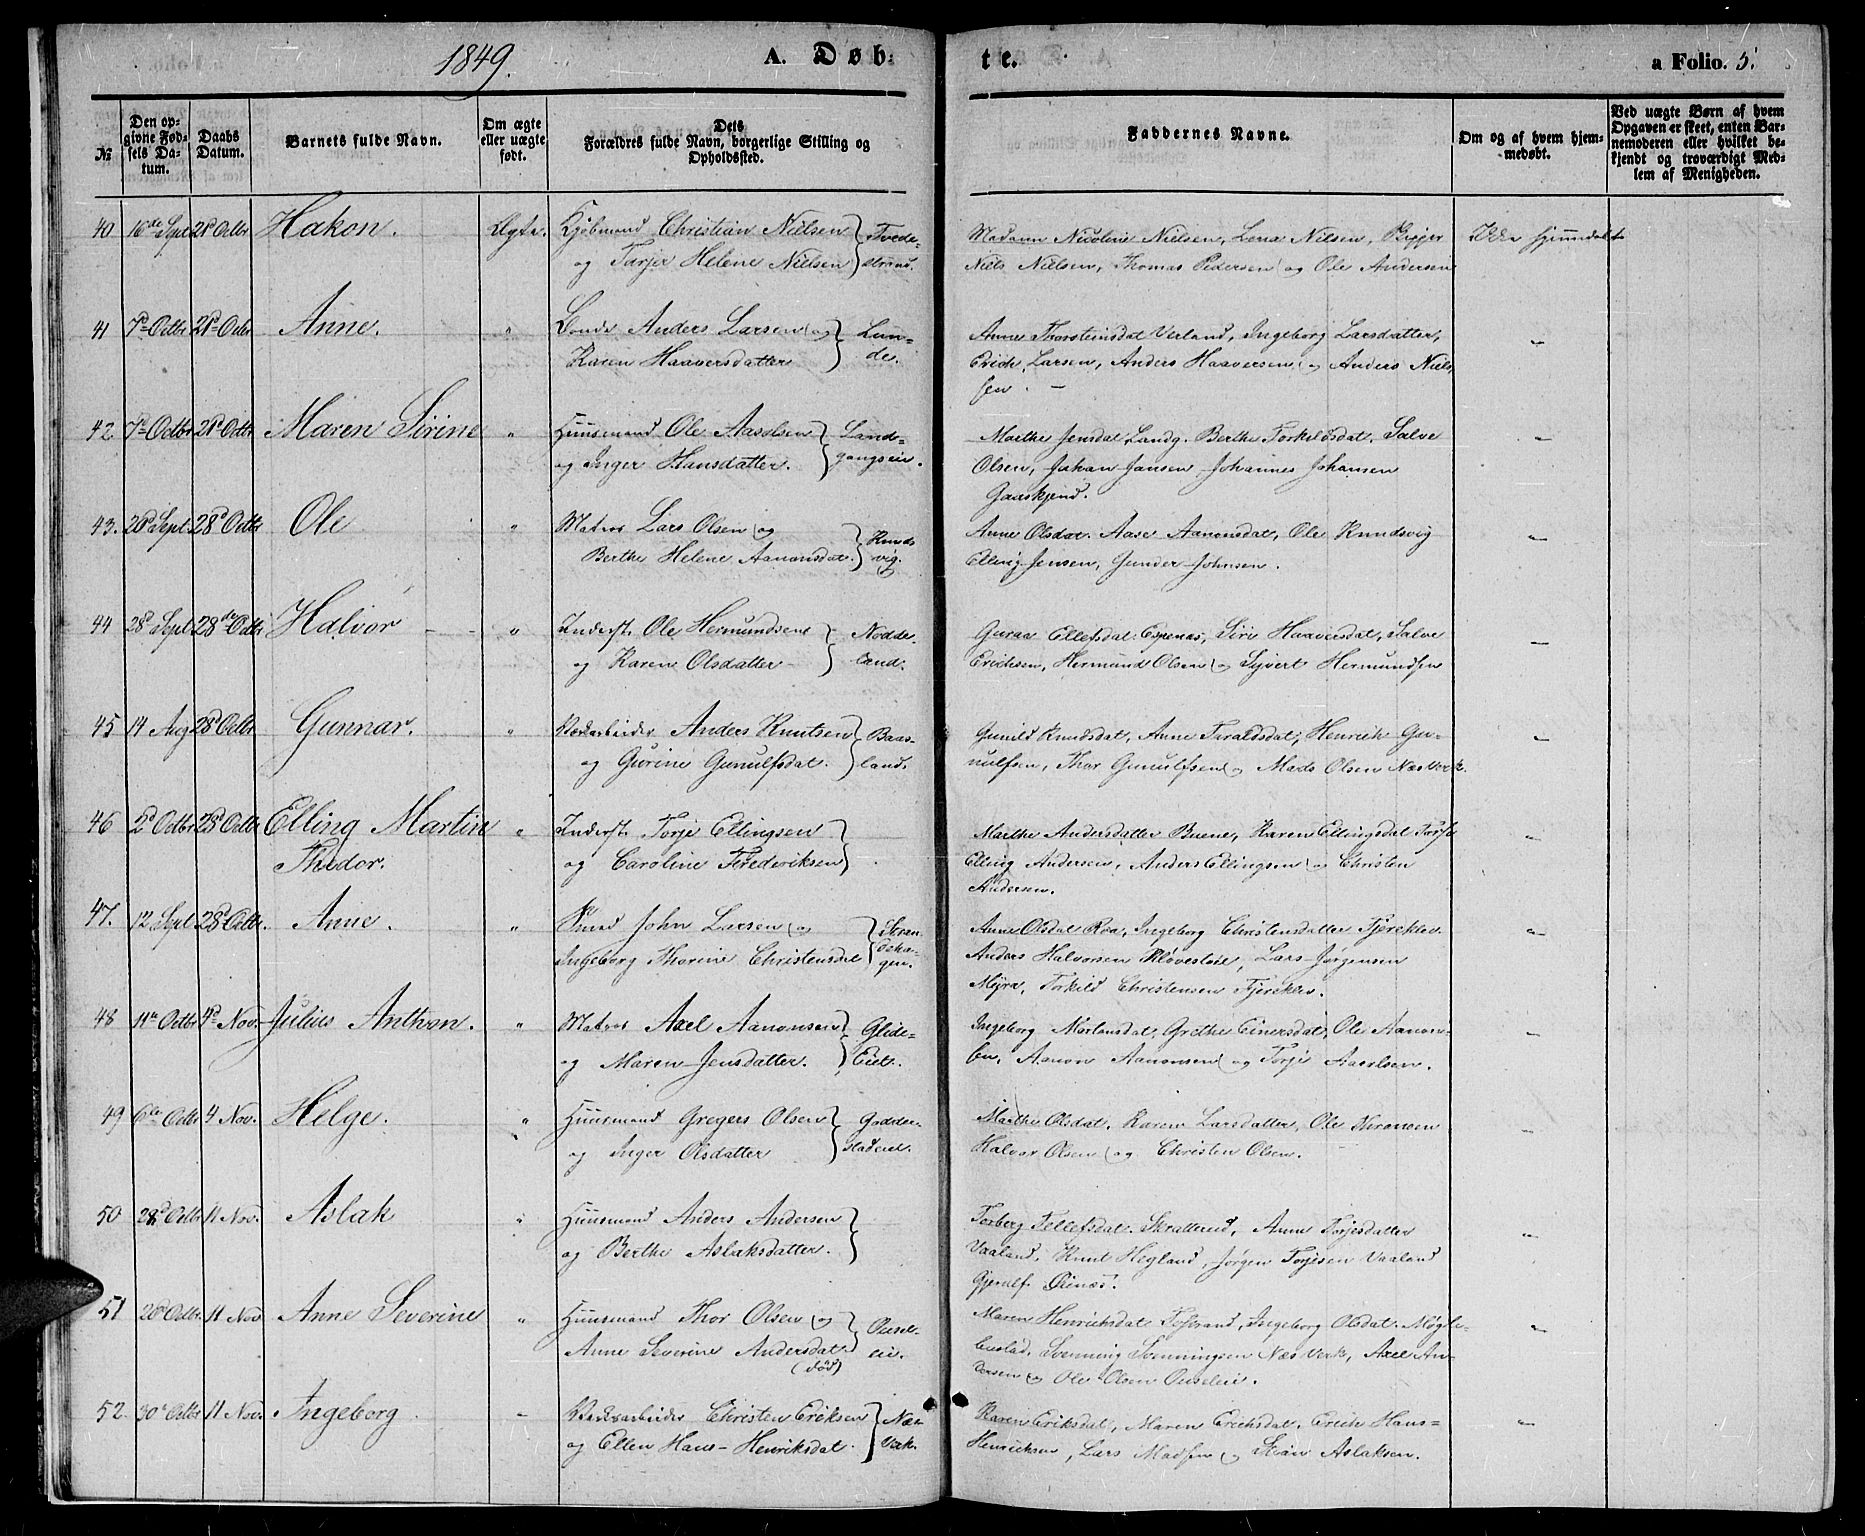 1849. A. Døb-
te. a Folio. 5.
No
Den op-
givne Fød-
sels Da-
tum.
Daabs
Datum.
Barnets fulde Navn.
Om ægte
eller uægte
født.
Dets
Forældres fulde Navn, borgerlige Stilling og
Opholdssted.
Faddernes Navne.
Om og af hvem hjem-
medøbt.
Ved uægte Børn af hvem
Opgaven er skeet, enten Bar-
nemoderen eller hvilket be-
kjendt og troværdigt Med-
lem af Menigheden.
40 16de Sept 21d Octbr Hakon. Ægte. Kjøbmand Christian Nielsen Tvede-
og Tarje Helene Nielsen strand.
Madam Nicoline Nielsen, Lena Nielsen,
Niels Nielsen, Thomas Pedersen og Ole Andersen
Ikke hjemmdøbt
41 7d Octbr 21d Octbr Anne. " Anders Larsen og Lun-
Karen Haaversdatter de.
Anne Thorsteinsdat Verland, Ingeborg Larsdatter,
Erich Larsen, Anders Haaversen og Anders Niel-
sen. —
42 7d Octbr 21d Octbr Maren Sirine " Huusmand Ole Aasolsen Land-
og Inger Hansdatter. gangseie.
Marthe Jensdat Landg. Berthe Torkildsdat. Salve
Olsen, Johan Jansen Johannes Johansen
43. 20d Sept. 28d Octbr Ole " Matros Lars Olsen og Knuds
Berthe Helene Aanonsdat. vig.
Anne Olsdat. Aase Aanonsdat, Ole Knudsvig
Elling Jensen, Gunder Johnsen.
44 28d Sept 28de Octbr Halvor " Inderst. Ole Hermundsen Nodde-
og Karen Olsdatter land.
Guroe Ellefsdat Espenæs, Siri Haaversdat, Salve
Erichsen, Hermund Olsen og Syvert Hermundsen
45 14 Aug 28d Octbr Gunnar. " Værksarbeider Anders Knutsen Baas-
og Gurine Gunulfsdat. land.
Gunild Knudsdat, Anne Taraldsdat, Henrich Gu-
nulfsen, Thor Gunulfsen og Mads Olsen Næs Verk.
46 2d Octbr 28d Octbr Elling Martin " Inderst. Torje Ellingsen
Thedor. og Caroline Frederiksen
Marthe Andersdatter Buene, Karen Ellingsdat
Elling Andersen, Anders Ellingsen og Christen
Andersen.
47. 12 Sept 28d Octbr. Anne. " John Larsen og Stran
Ingeborg Thorine Christensdat dska-
gen.
Anne Olsdat Roa, Ingeborg Christensdatter Fjereklev.
Anders Halvorsen Lars Jørgensen
Myra, Torkild Christensen Fjereklev.
48 11te Octbr 4d Nov. Julius Anthon. " Matros Axel Aanonsen Glide-
og Maren Jensdatter. Eiet.
Ingeborg Morlansdat, Grethe Einersdat, Ole Aanon-
sen, Aanon Aanonsen og Torje Aasolsen.
49 6te Octbr 4 Nov. Helge. " Huusmand Gregers Olsen Godder-
og Inger Olsdatter stadeiet.
Marthe Olsdat, Karen Larsdatter, Ole
Halvor Olsen og Christen Olsen.
50 28d Octbr 11 Nov. Aslak " Huusmand Anders Andersen
og Berthe Aslaksdatter.
Torberg Tellefsdat. Skrattereid, Anne Torjesdatter
Vaaland, Knut Hegland, Jørgen Torjesen Vaaland
51 20d Octbr. 11 Nov Anne Severine " Huusmand Thor Olsen og Ousel-
Anne Severine Andersdat. eie.
(død)
Maren Henrichsdat Tostrand, Ingeborg Olsdat. Møgle-
bustad. Svenning Svenningsen Næs Verk, Axel An-
dersen og Ole Olsen Ouseleie.
52. 30d Octbr 11 Nov. Ingeborg " Værksarbeider Christen Eriksen Næs
og Ellen Hans-Henriksdat. Værk.
Karen Eriksdat, Maren Erichsdat, Erich Hans-
Henrichsen, Lars Madsen og Aslaksen.